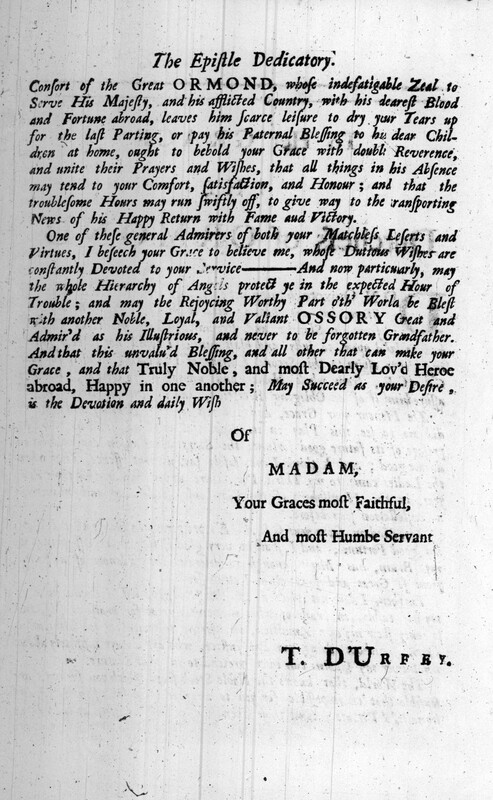 The Epiſtle Dedicatory.
Conſort of the Great ORMOND, whoſe indefatigable Zeal to
Serve His Majeſty, and his afflicted Country, with his deareſt Blood
and Fortune abroad, leaves him ſcarce leiſure to dry your Tears up
for the laſt Parting, or pay his Paternal Bleſſing to his dear Chil-
dren at home, ought to behold your Grace with double Reverence,
and unite their Prayers and Wiſhes, that all things in his Abſence
may tend to your Comfort, ſatisfaction, and Honour; and that the
troubleſome Hours may run ſwiftly off, to give way to the ranſporting
News of his Happy Return with Fame aud Victory.
One of theſe general Admirers of both your Matchleſs Leſerts and
Virtues, I beſeech your Grace to believe me, whoſe Dutious Wiſhes are
conſtantly Devoted to your Service——And now particuarly, may
the whole Hierarchy of Angels protect ye in the expected Hour of
Trouble; and may the Rejoycing Worthy Part o'th' Worla be Bleſt
with another Noble, Loyal, and Valiant OSSORY Great and
Admir'd as his Illuſtrious, and never to be forgotten Grandfather.
And that this unvalu'd Bleſſing, and all other that can make your
Grace, and that Truly Noble, and moſt Dearly Lov'd Heroe
abroad, Happy in one another; May Succeed as your Deſire,
is the Devotion and daily Wiſh
Of
MADAM,
Your Graces moſt Faithful,
And moſt Humbe Servant
T. D'URFEY.